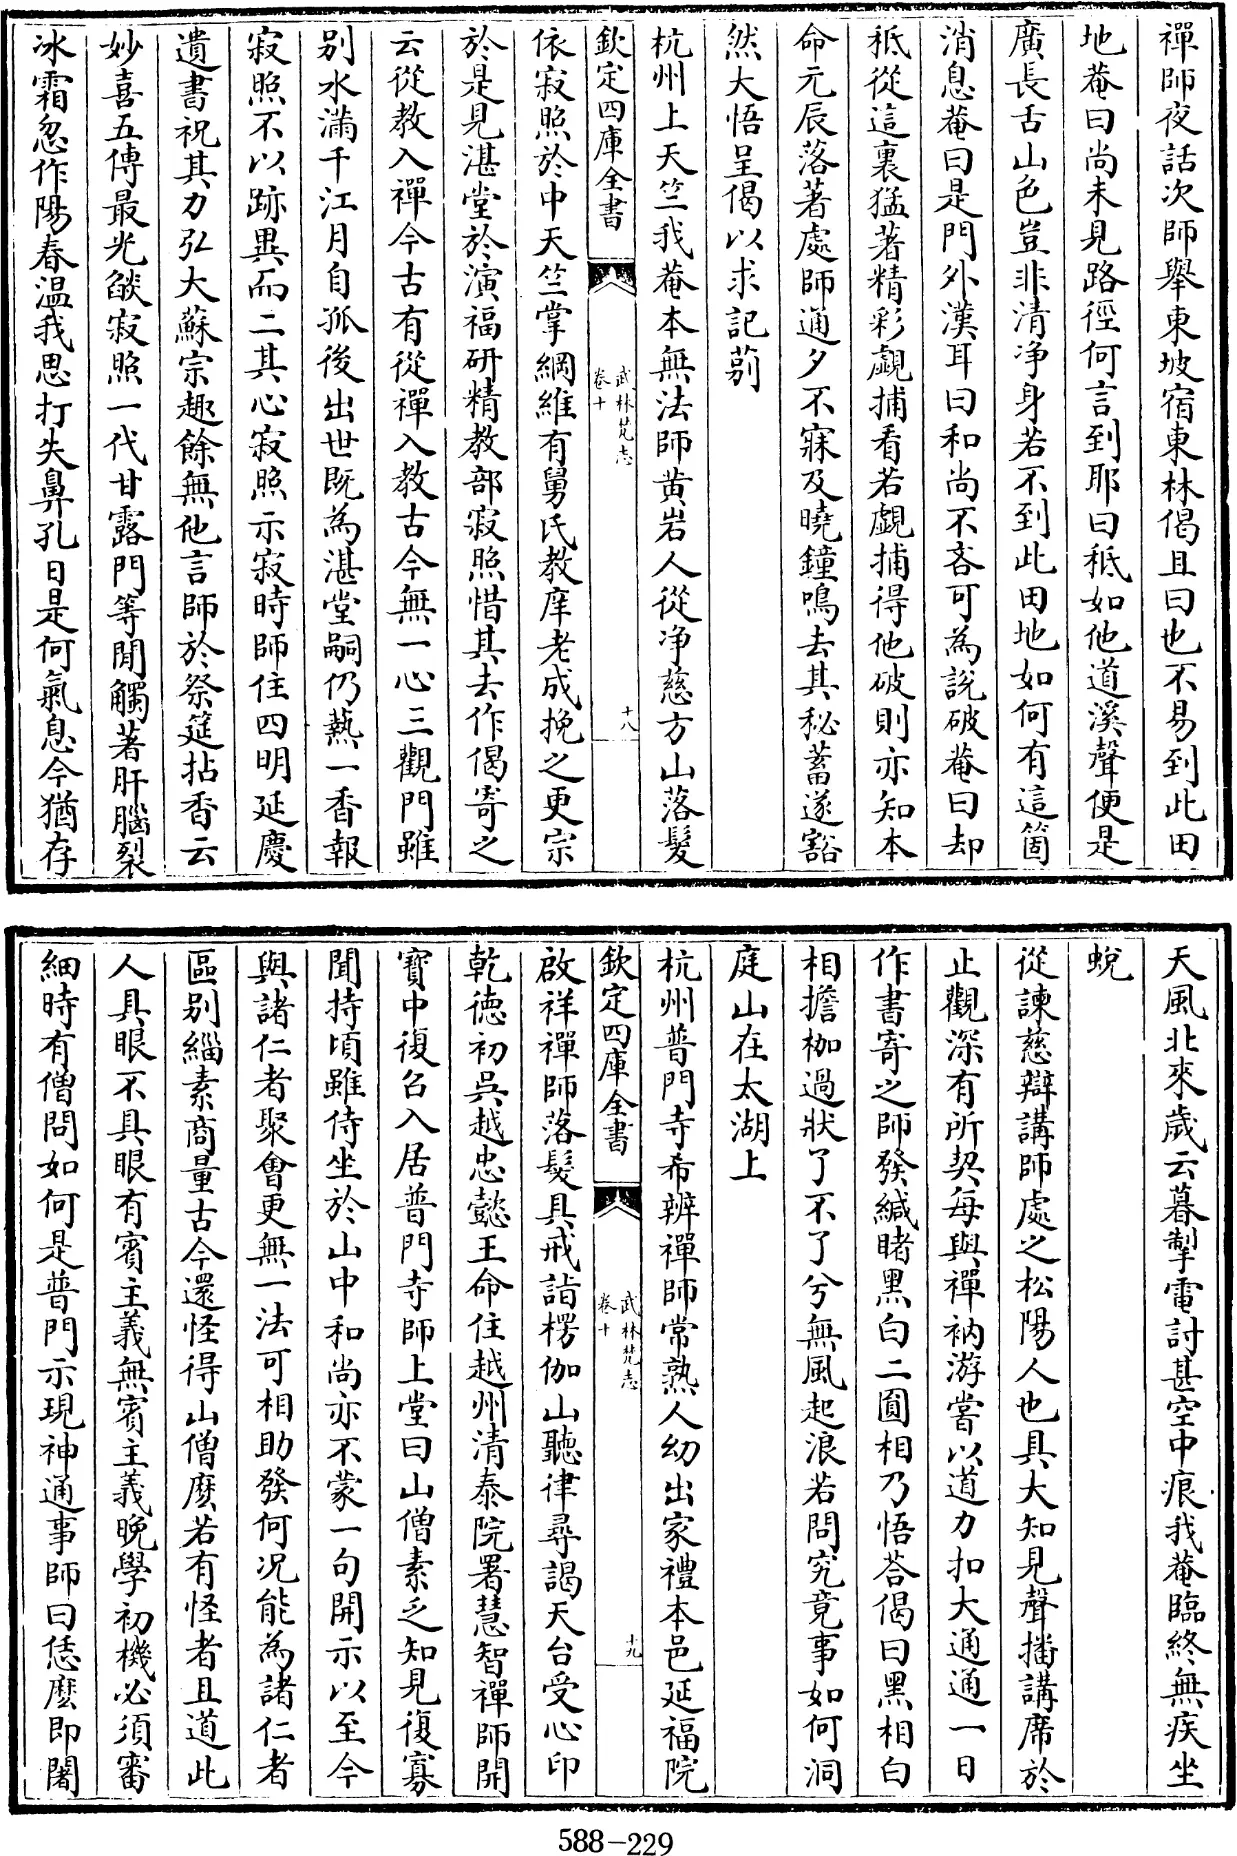 禪師夜話次師舉東坡宿東林偈且曰也不易到此田
地菴曰尚未見路徑何言到耶曰秪如他道溪聲便是
廣長舌山色豈非清净身若不到此田地如何有這箇
消息菴曰是門外漢耳曰和尚不吝可為說破菴曰却
秪從這裏猛著精彩覷捕看若覷捕得他破則亦知本
命元辰落著處師通夕不寐及曉鐘鳴去其秘蓄遂豁
然大悟呈偈以求記莂
杭州上天竺我菴本無法師黄岩人從净慈方山落髮
欽定四庫全書
武林梵志
卷十
十八
依寂照於中天竺掌綱維有舅氏教庠老成挽之更宗
於是見湛堂於演福研精教部寂照惜其去作偈寄之
云從教入禪今古有從禪入教古今無一心三觀門雖
别水滿千江月自孤後出世既為湛堂嗣仍爇一香報
寂照不以跡異而二其心寂照示寂時師住四明延慶
遺書祝其力弘大蘇宗趣餘無他言師於祭筵拈香云
妙喜五傳最光燄寂照一代甘露門等閒觸著肝腦裂
冰霜忽作陽春温我思打失鼻孔日是何氣息今猶存
天風北來歲云暮掣電討甚空中痕我菴臨終無疾坐
蛻
從諫慈辯講師處之松陽人也具大知見聲播講席於
止觀深有所契每與禪衲游嘗以道力扣大通通一日
作書寄之師發緘睹黑白二圓相乃悟荅偈曰黑相白
相擔枷過狀了不了兮無風起浪若問究竟事如何洞
庭山在太湖上
杭州普門寺希辨禪師常熟人幼出家禮本邑延福院
欽定四庫全書
武林梵志
卷十
十九
啟祥禪師落髮具戒詣楞伽山聽律尋謁天台受心印
乾德初吳越忠懿王命住越州清泰院署慧智禪師開
寶中復召入居普門寺師上堂曰山僧素乏知見復寡
聞持頃雖侍坐於山中和尚亦不蒙一句開示以至今
與諸仁者聚會更無一法可相助發何况能為諸仁者
區别緇素商量古今還怪得山僧麽若有怪者且道此
人具眼不具眼有賓主義無賓主義晚學初機必須審
細時有僧問如何是普門示現神通事師曰恁麽即闍